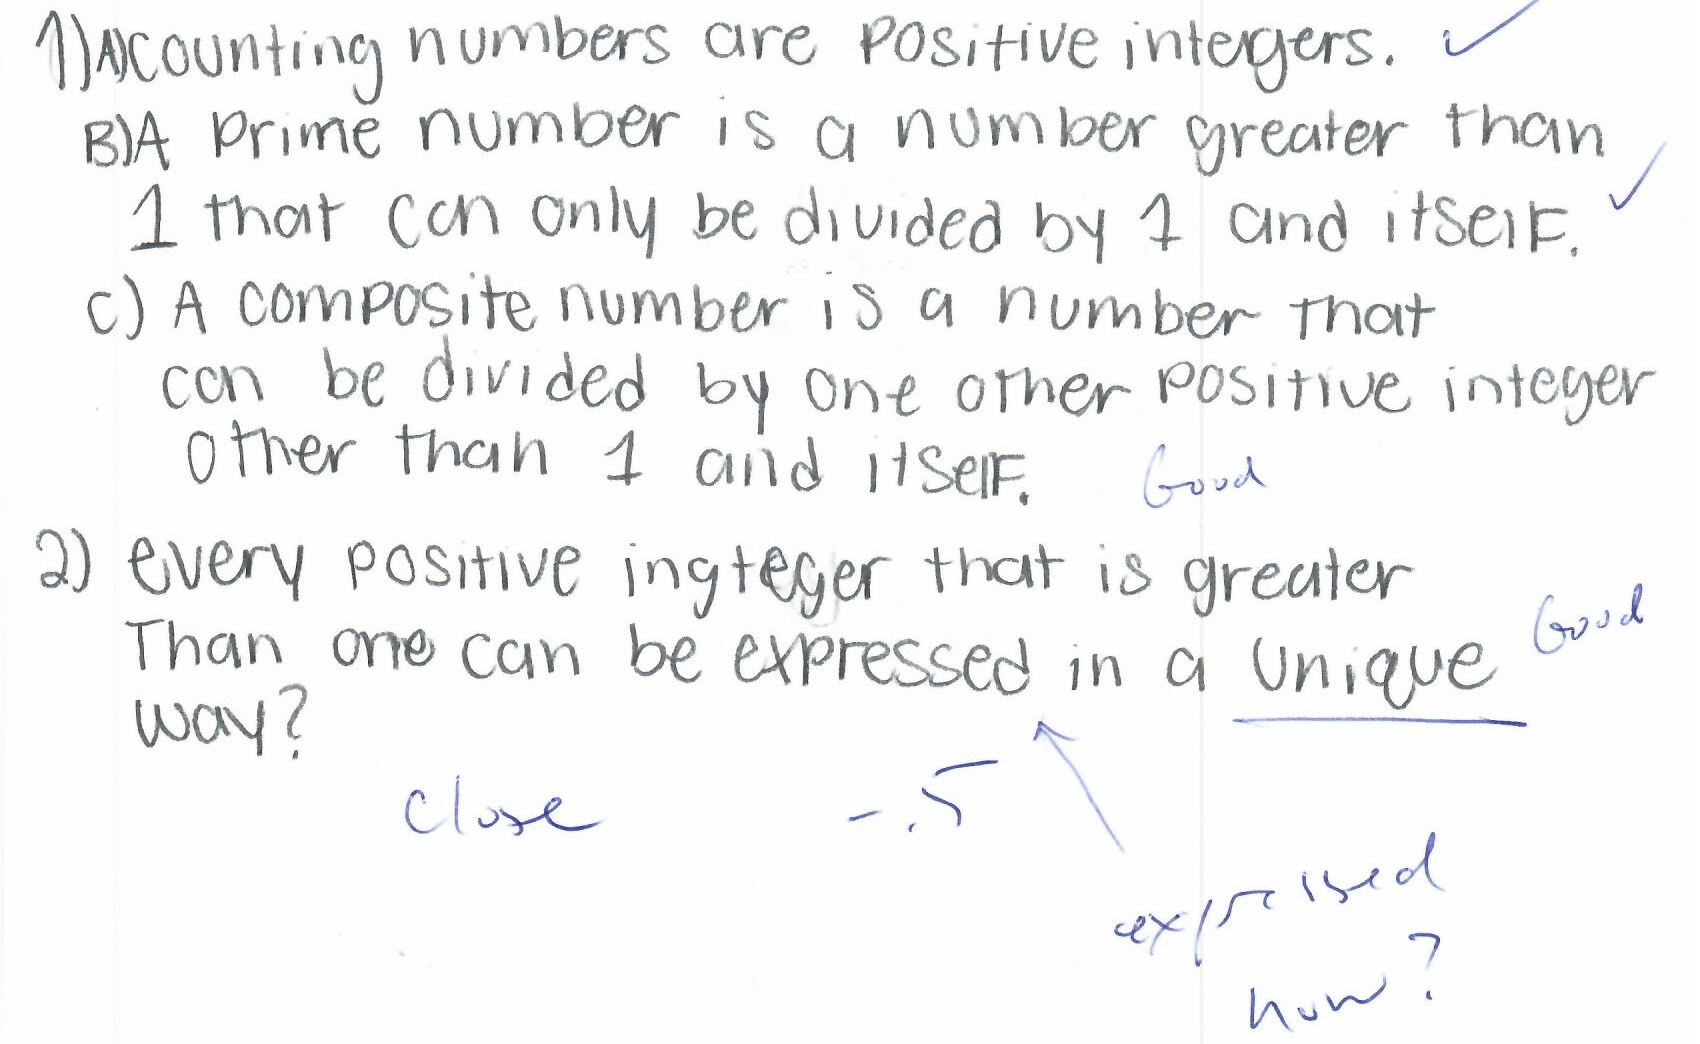 1)A)Counting numbers are positive intergers. ✓
B)A prime number is a number greater than
1 that can only be divided by 1 and itself. ✓
C) A composite number is a number that
can be divided by one other positive integer
other than 1 and itself. Good
2) every positive ingteger that is greater
Than one can be expressed in a unique Good
way?
Close -.5
expressed
how?